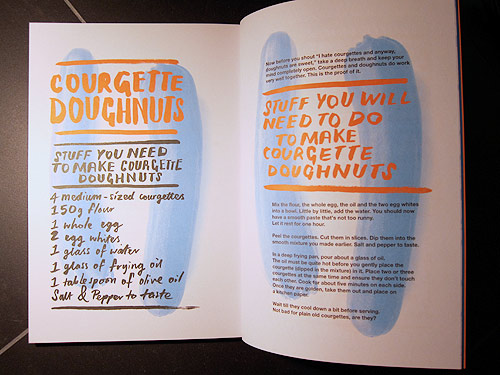 COURGETTE
DOUGHNUTS
STUFF YOU NEED
TO MAKE COURGETTE
DOUGHNUTS
4 medium-sized courgettes
150g flour
1 whole egg
2 egg whites
1 glass of water
1 glass of frying oil
1 tablespoon of olive oil
Salt & Pepper to taste
Now before you shout "I hate courgettes and anyway,
doughnuts are sweet," take a deep breath and keep your
mind completely open. Courgettes and doughnuts do work
very well together. This is the proof of it.
STUFF YOU WILL
NEED TO DO
TO MAKE
COURGETTE
DOUGHNUTS
Mix the flour, the whole egg, the oil and the two egg whites
into a bowl. Little by little, add the water. You should now
have a smooth paste that's not too runny.
Let it rest for one hour.
Peel the courgettes. Cut them in slices. Dip them into the
smooth mixture you made earlier. Salt and pepper to taste.
In a deep frying pan, pour about a glass of oil.
The oil must be quite hot before you gently place the
courgette (dipped in the mixture) in it. Place two or three
courgettes at the same time and ensure they don't touch
each other. Cook for about five minutes on each side.
Once they are golden, take them out and place on
a kitchen paper.
Wait till they cool down a bit before serving.
Not bad for plain old courgettes, are they?